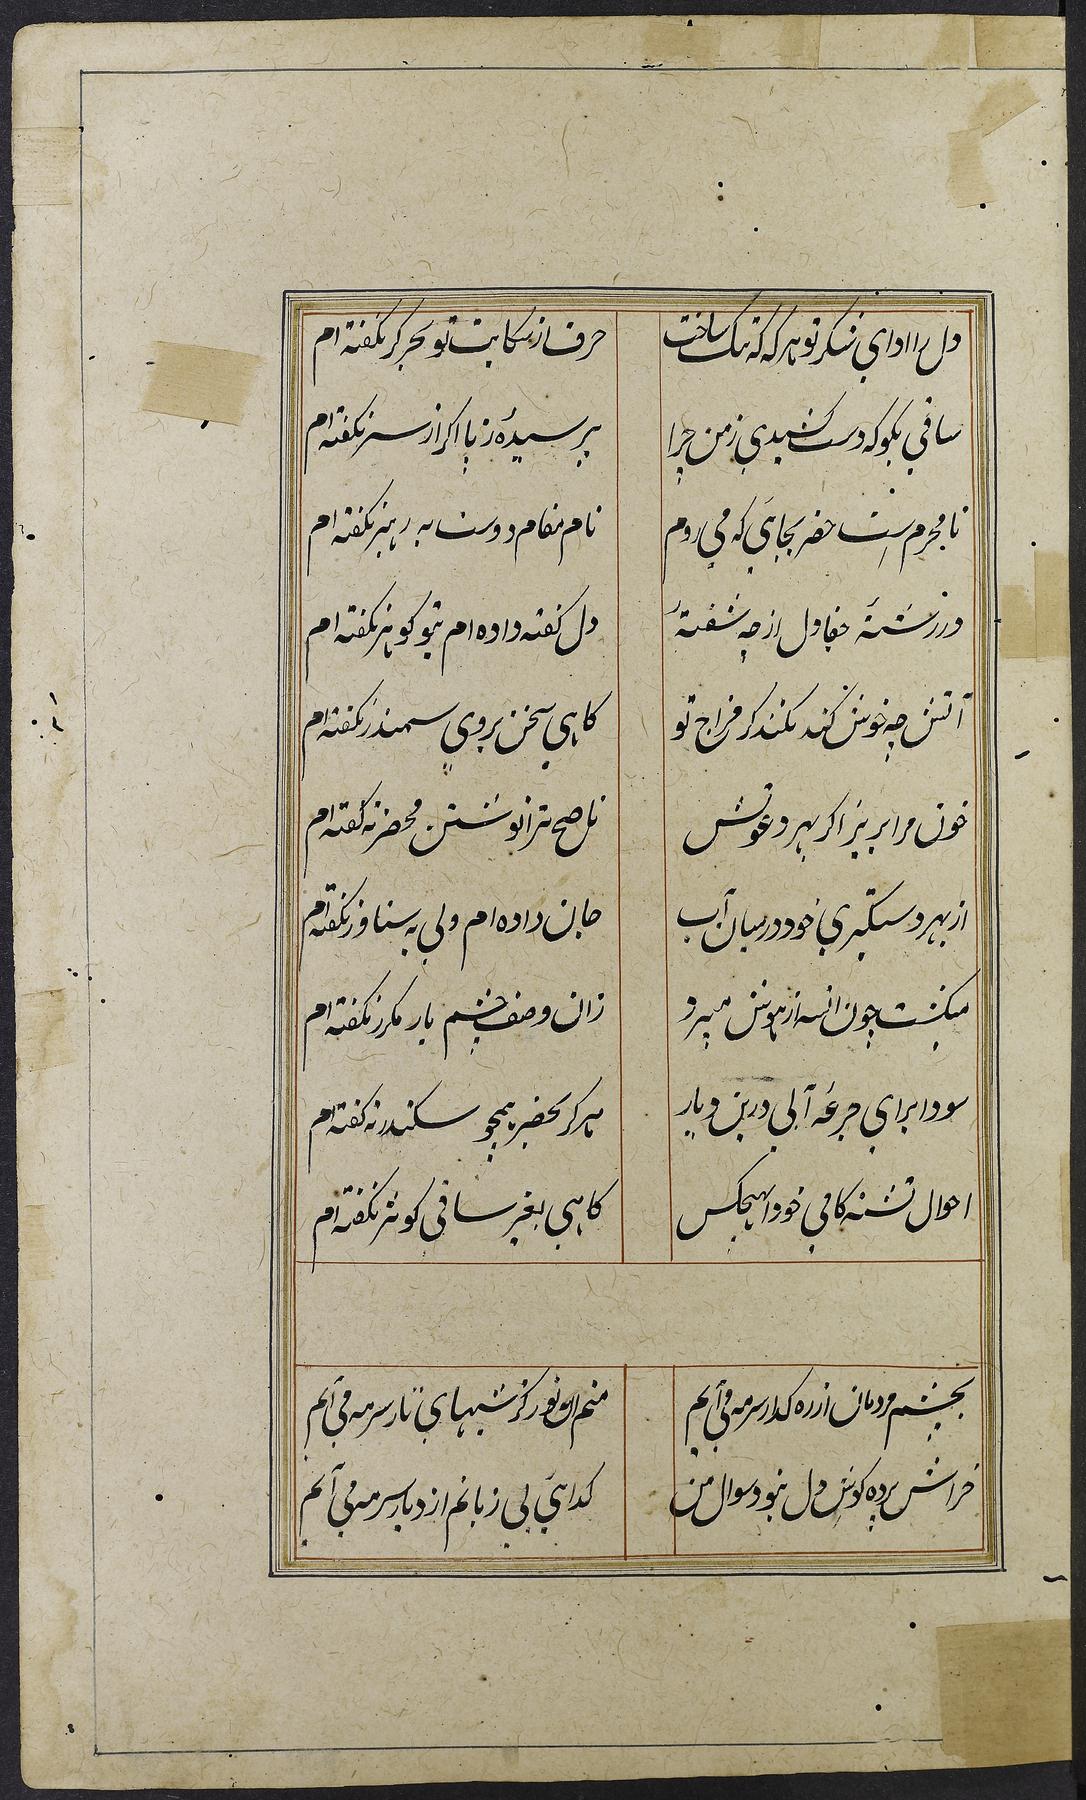 دل را ادای شکر تو هر که که تنگ ساخت
حرف از شکایت تو بجز کر نکفته ام
ساقی بکو که دست کشیدی ز من چرا
پرسیدهٔ ز پا اکر از سر نکفته ام
نامحرم است خضر بجایی که می روم
نام مقام دوست به رهبر نکفته ام
در رشتهٔ جفا دل از چه سُفتهٔ
دل کفته داده ام بتو کوهر نکفته ام
آتش چه خوش کند نکند کر مزاج تو
کاهی سخن بروی سمندر نکفته ام
خون مرا بریز اکر بهر دعوتش
ناصح ترا نوشتن محضر نه کفته ام
از بهر دستکیری خود در میان آب
جان داده ام ولی به شناور نکفته ام
میکشت چون انسه از هوش میرود
زان وصف چشم یار مکرر نکفته ام
سودا برای جرعهٔ آبی درین دیار
هر کز بخضر همچو سکندر نه کفته ام
احوال تشنه کامی خود را بهیچکس
کاهی بغیر ساقی کوثر نکفته ام
بچشم مردمان از ره کذار سرمه می آیم
منم نور کز شبهای تار سرمه می آیم
خراش پرده کوش دل نبود سوال من
کدایی بی زبانم از دیار سرمه می آیم